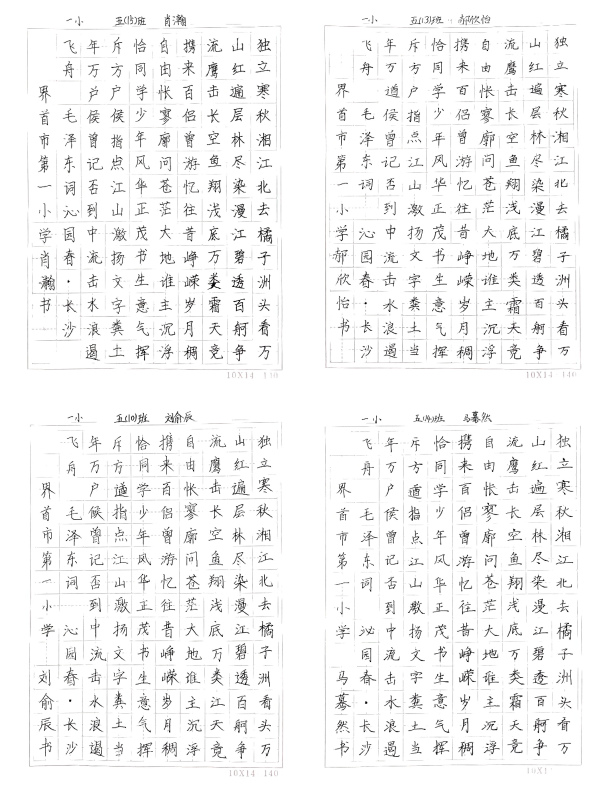 一小 五(15)班 肖瀚
独立寒秋湘江北去橘子洲头看万
山红遍层林尽染漫江碧透百舸争
流鹰击长空鱼翔浅底万类霜天竞
携来百侣曾游忆往昔峥嵘岁月稠
自由怅寥廓问苍茫大地谁主沉浮
恰同学少年风华正茂书生意气挥
斥方户侯指点江山激扬文字粪土
年万户侯曾记否到中流击水浪遏
飞舟 毛泽东词沁园春·长沙
界首市第一小学肖瀚书
10X14 140
一小 五(13)班 郝欣怡
独立寒秋湘江北去橘子洲头看万
山红遍层林尽染漫江碧透百舸争
流鹰击长空鱼翔浅底万类霜天竞
自由怅寥廓问苍茫大地谁主沉浮
携来百侣曾游忆往昔峥嵘岁月稠
恰同学少年风华正茂书生意气挥
斥方户指点江山激扬文字粪土当
年万遒侯曾记否到中流击水浪遏
飞舟 毛泽东词 沁园春·长沙
界首市第一小学郝欣怡书
10X14 140
一小 五(10)班 刘俞辰
独立寒秋湘江北去橘子洲头看万
山红遍层林尽染漫江碧透百舸争
流鹰击长空鱼翔浅底万类霜天竞
自由怅寥廓问苍茫大地谁主沉浮
携来百侣曾游忆往昔峥嵘岁月稠
恰同学少年风华正茂书生意气挥
斥方遒指点江山激扬文字粪土当
年万户候曾记否到中流击水浪遏
飞舟 毛泽东词 沁园春·长沙
界首市第一小学 刘俞辰书
10X14 140
一小 五(14)班 马慕然
独立寒秋湘江北去橘子洲头看万
山红遍层林尽染漫江碧透百舸争
流鹰击长空鱼翔浅底万类霜天竞
自由怅寥廓问苍茫大地谁主沉浮
携来百侣曾游忆往昔峥嵘岁月稠
恰同学少年风华正茂书生意气挥
斥方遒指点江山激扬文字粪土当
年万户侯曾记否到中流击水浪遏
飞舟 毛泽东词 泌园春·长沙
界首市第一小学 马慕然书
10X1